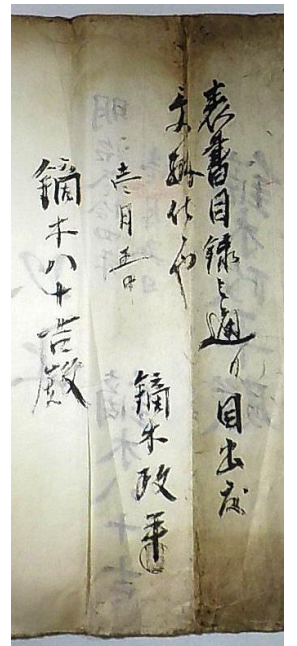 表書目録之通り目出度
受納仕候也
二月日
鏑木政
鏑木八十吉殿